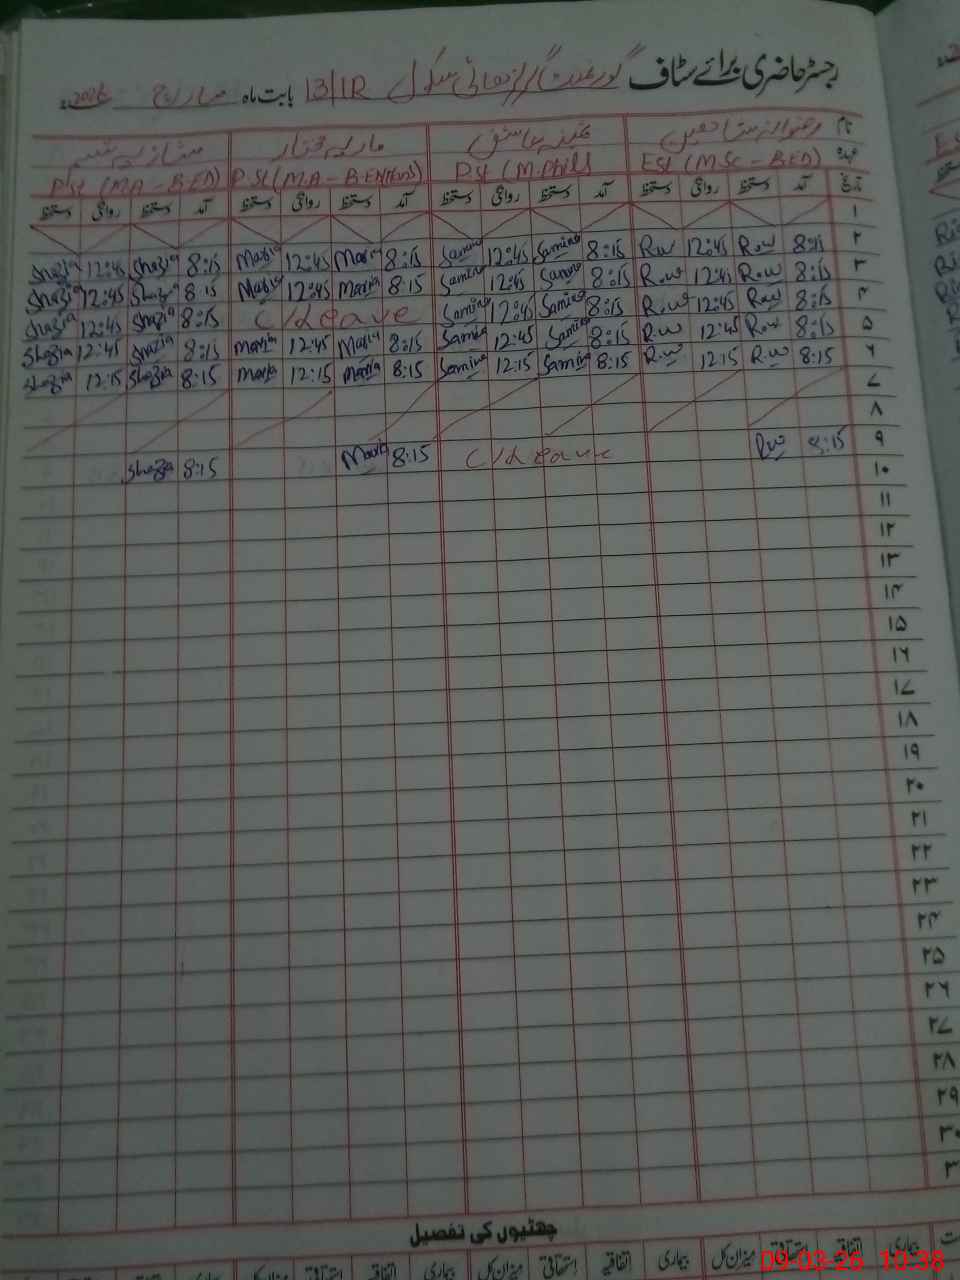 رجسٹر حاضری برائے سٹاف گورنمنٹ گرلز ہائی سکول 13/1R بابت ماہ مارچ 2026ء
نام رضوانہ شاھین ثمینہ عاشق ماریہ مختار شازیہ
عہدہ ESE (M.Sc - B.ED) PSE (M.Phil) P.SE (M.A - B.ED(Hons) PSE (M.A - B.ED)
تاریخ آمد دستخط روانگی دستخط آمد دستخط روانگی دستخط آمد دستخط روانگی دستخط آمد دستخط روانگی دستخط
۱
۲ 8:15 R.w 12:45 R.w 8:15 Samina 12:45 Samina 8:15 Maria 12:45 Maria 8:15 Shazia 12:45 Shazia
۳ 8:15 R.w 12:45 R.w 8:15 Samina 12:45 Samina 8:15 Maria 12:45 Maria 8:15 Shazia 12:45 Shazia
۴ 8:15 R.w 12:45 R.w 8:15 Samina 12:45 Samina C/Leave 8:15 Shazia 12:45 Shazia
۵ 8:15 R.w 12:45 R.w 8:15 Samina 12:45 Samina 8:15 Maria 12:45 Maria 8:15 Shazia 12:45 Shazia
۶ 8:15 R.w 12:15 R.w 8:15 Samina 12:15 Samina 8:15 Maria 12:15 Maria 8:15 Shazia 12:15 Shazia
۷
۸
۹ 8:15 R.w C/Leave 8:15 Maria 8:15 Shazia
۱۰
۱۱
۱۲
۱۳
۱۴
۱۵
۱۶
۱۷
۱۸
۱۹
۲۰
۲۱
۲۲
۲۳
۲۴
۲۵
۲۶
۲۷
۲۸
۲۹
۳۰
۳
چھٹیوں کی تفصیل
بیماری اتفاقیہ استحقاقی میزان کل بیماری اتفاقیہ استحقاقی میزان کل بیماری اتفاقیہ استحقاقی میزان کل بیماری
09-03-26 10:38